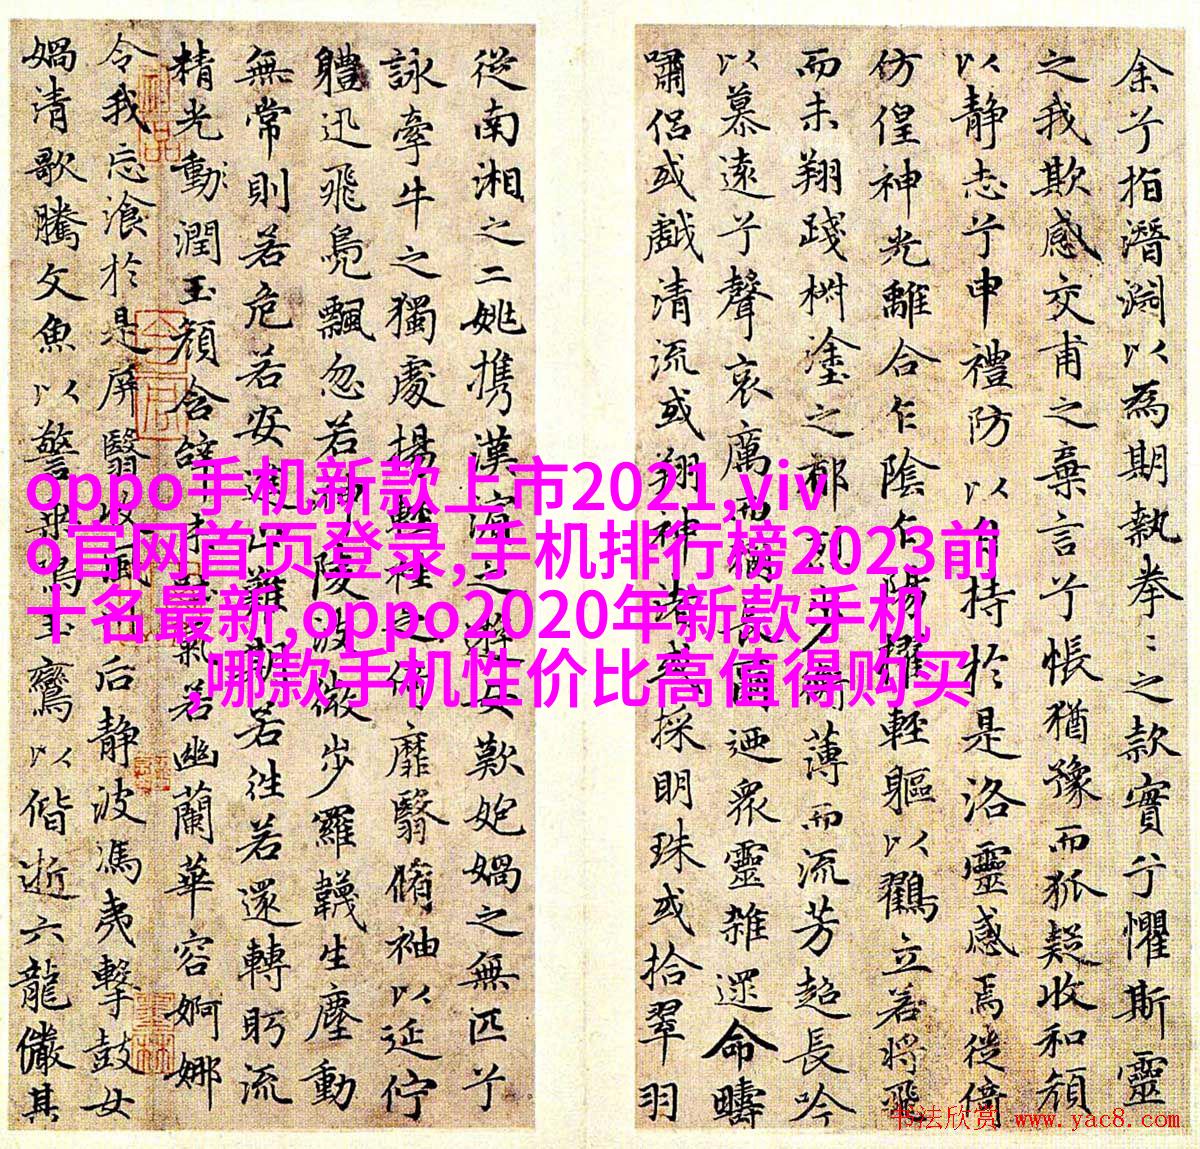 oppo手机新款上市2021,viv
o官网首页登录,手机排行榜2023前
十名最新,oppo2020年新款手机
,哪款手机性价比高值得购买
余兮指潛淵以為期執拳〻之款實兮懼斯靈
之我欺感交甫之棄言兮悵猶豫而狐疑收和顏
以靜志兮申禮防以自持於是洛靈感焉徙倚
仿偟神光離合乍陰乍陽擢輕軀以鶴立若將飛
而未翔踐椒塗之郁烈步蘅薄而流芳超長吟
以慕遠兮聲哀厲而彌長爾迺眾靈雜遝命疇
嘯侶或戲清流或翔神渚或採明珠或拾翠羽
從南湘之二姚攜漢濱之遊女歎匏媧之無匹兮
詠牽牛之獨處揚輕袿之倚靡翳脩袖以延佇
體迅飛鳧飄忽若神陵波微步羅韈生塵動
無常則若危若安進止難期若往若還轉眄流
精光動潤玉顏含辭未吐氣若幽蘭華容婀娜
令我忘飡於是屏翳收風川后靜波馮夷擊鼓女
媧清歌騰文魚以警乘鳴玉鸞以偕逝六龍儼其
书法欣赏 www.yac8.com